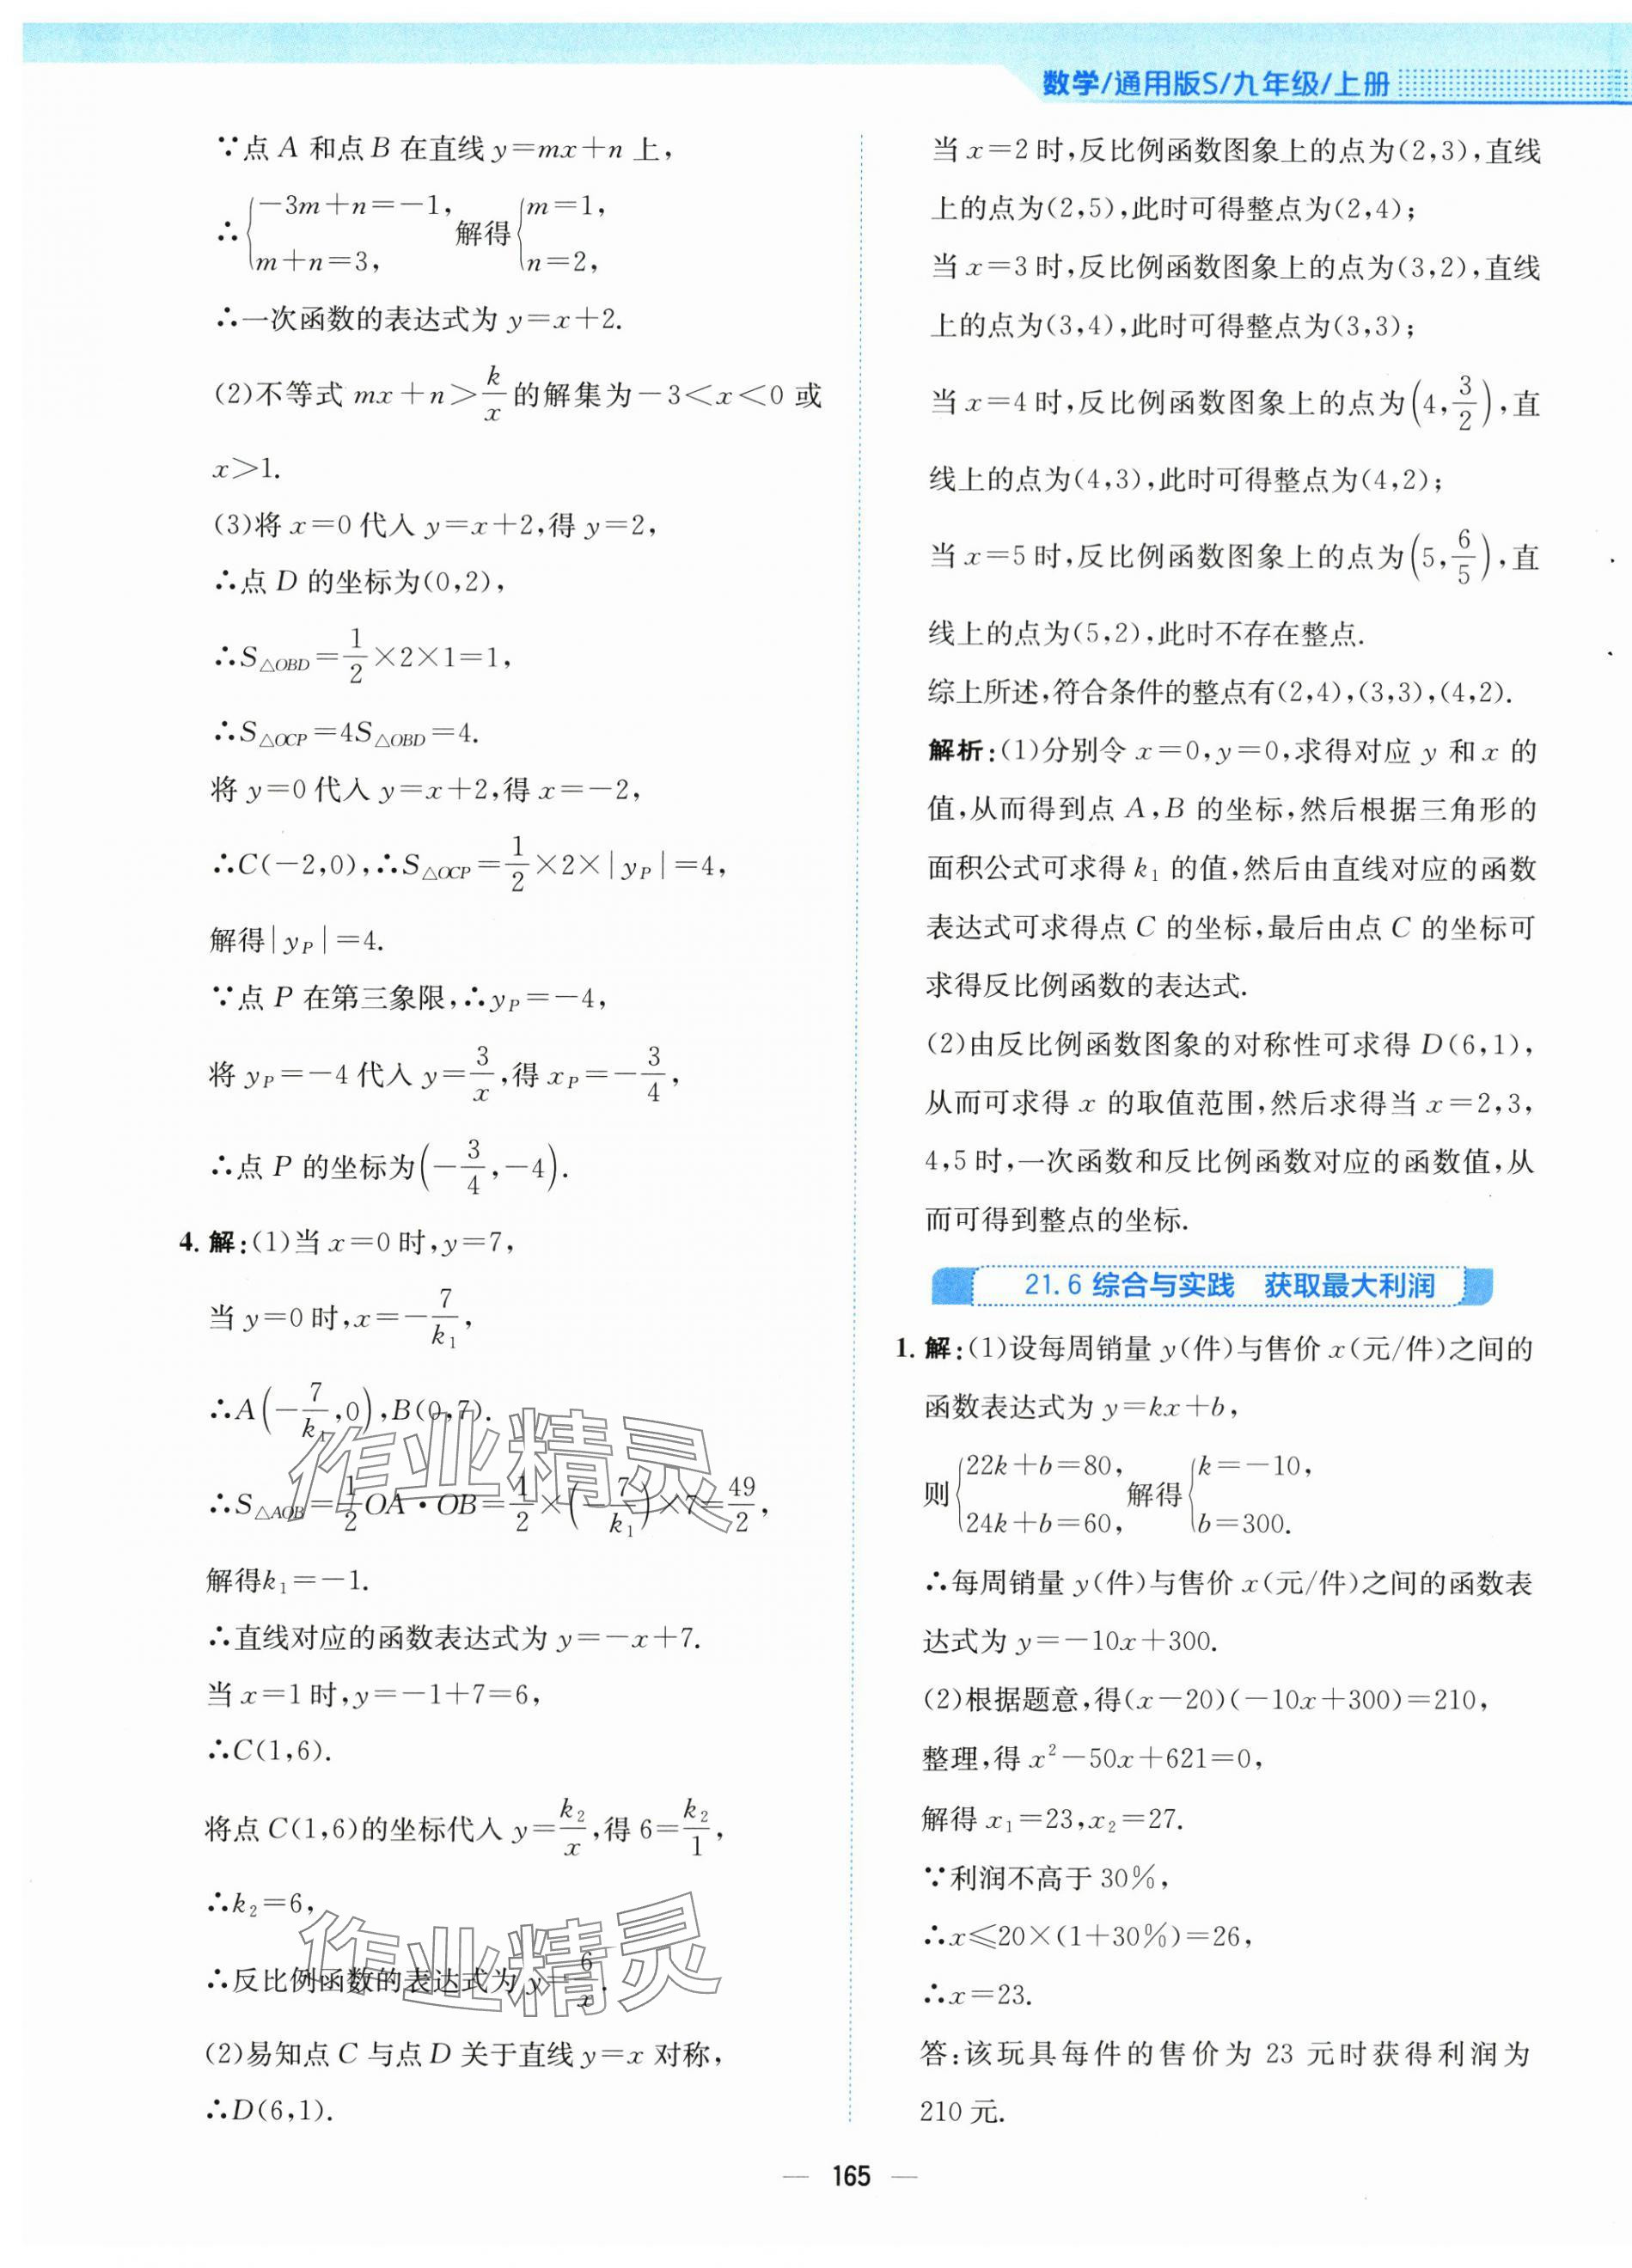 数学/通用版S/九年级/上册
∵点 A 和点 B 在直线 y=mx+n 上,
∴{-3m+n=-1, m+n=3, 解得{m=1, n=2,
∴一次函数的表达式为 y=x+2.
(2)不等式 mx+n>k/x 的解集为-3<x<0 或
x>1.
(3)将 x=0 代入 y=x+2,得 y=2,
∴点 D 的坐标为(0,2),
∴S△OBD=1/2×2×1=1,
∴S△OCP=4S△OBD=4.
将 y=0 代入 y=x+2,得 x=-2,
∴C(-2,0),∴S△OCP=1/2×2×|yP|=4,
解得|yP|=4.
∵点 P 在第三象限,∴yP=-4,
将 yP=-4 代入 y=3/x,得 xP=-3/4,
∴点 P 的坐标为(-3/4,-4).
4. 解:(1)当 x=0 时,y=7,
当 y=0 时,x=-7/k₁,
∴A(-7/k₁,0),B(0,7).
∴S△AOB=1/2OA·OB=1/2×(-7/k₁)×7=49/2,
解得k₁=-1.
∴直线对应的函数表达式为 y=-x+7.
当 x=1 时,y=-1+7=6,
∴C(1,6).
将点 C(1,6)的坐标代入 y=k₂/x,得 6=k₂/1,
∴k₂=6,
∴反比例函数的表达式为 y=6/x.
(2)易知点 C 与点 D 关于直线 y=x 对称,
∴D(6,1).
当 x=2 时,反比例函数图象上的点为(2,3),直线
上的点为(2,5),此时可得整点为(2,4);
当 x=3 时,反比例函数图象上的点为(3,2),直线
上的点为(3,4),此时可得整点为(3,3);
当 x=4 时,反比例函数图象上的点为(4,3/2),直
线上的点为(4,3),此时可得整点为(4,2);
当 x=5 时,反比例函数图象上的点为(5,6/5),直
线上的点为(5,2),此时不存在整点.
综上所述,符合条件的整点有(2,4),(3,3),(4,2).
解析:(1)分别令 x=0,y=0,求得对应 y 和 x 的
值,从而得到点 A,B 的坐标,然后根据三角形的
面积公式可求得 k₁ 的值,然后由直线对应的函数
表达式可求得点 C 的坐标,最后由点 C 的坐标可
求得反比例函数的表达式.
(2)由反比例函数图象的对称性可求得 D(6,1),
从而可求得 x 的取值范围,然后求得当 x=2,3,
4,5 时,一次函数和反比例函数对应的函数值,从
而可得到整点的坐标.
21.6 综合与实践 获取最大利润
1. 解:(1)设每周销量 y(件)与售价 x(元/件)之间的
函数表达式为 y=kx+b,
则{22k+b=80, 24k+b=60, 解得{k=-10, b=300.
∴每周销量 y(件)与售价 x(元/件)之间的函数表
达式为 y=-10x+300.
(2)根据题意,得(x-20)(-10x+300)=210,
整理,得 x²-50x+621=0,
解得 x₁=23,x₂=27.
∵利润不高于 30%,
∴x≤20×(1+30%)=26,
∴x=23.
答:该玩具每件的售价为 23 元时获得利润为
210 元.
作业精灵
作业精灵
— 165 —